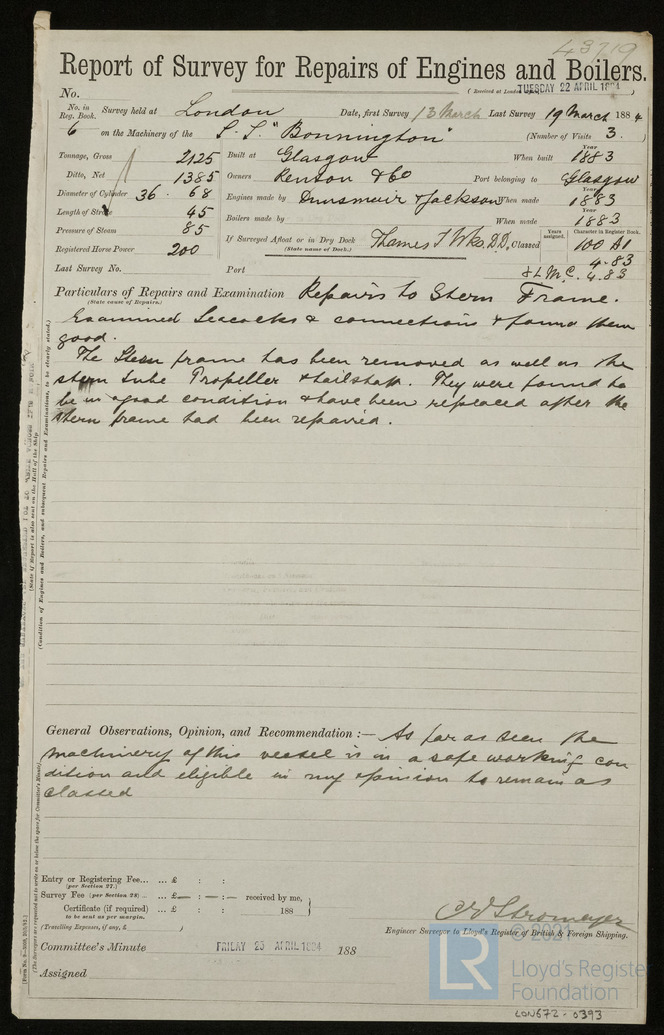 43719
Report of Survey for Repairs of Engines and Boilers.
(Received at London TUESDAY 22 APRIL 1884
No.
No. in Reg. Book. Survey held at London Date, first Survey 13 March Last Survey 19 March 1884
6 on the Machinery of the S.S. "Bonnington" (Number of Visits 3.)
Tonnage, Gross 2125 Built at Glasgow When built Year 1883
Ditto, Net 1385 Owners Renton & Co Port belonging to Glasgow
Diameter of Cylinder 36 . 68 Engines made by Dunsmuir & Jackson When made Year 1883
Length of Stroke 45 Boilers made by When made Year 1883
Pressure of Steam 85 If Surveyed Afloat or in Dry Dock Thames I Wks. D.D. Classed Years assigned. Character in Register Book. 100 A1
Registered Horse Power 200 (State name of Dock.) 4.83
Last Survey No. Port & L.M.C. 4.83
Particulars of Repairs and Examination Repairs to Stern Frame.
(State cause of Repairs.)
Examined Seacocks & connections & found them
good.
The Stern frame has been removed as well as the
stern tube Propeller & tailshaft. They were found to
be in good condition & have been replaced after the
stern frame had been repaired.
General Observations, Opinion, and Recommendation :— As far as seen the
machinery of this vessel is in a safe working con
dition and eligible in my opinion to remain as
classed
Entry or Registering Fee... ... £ : :
(per Section 27.)
Survey Fee (per Section 28) ... ... £— : — : — received by me,
Certificate (if required) ... £ : : 188
to be sent as per margin.
(Travelling Expenses, if any, £ )
C E Stromeyer
Engineer Surveyor to Lloyd's Register of British & Foreign Shipping.
Committee's Minute FRIDAY 25 APRIL 1884 188
Assigned
(Condition of Engines and Boilers, and subsequent Repairs and Examinations, to be clearly stated.)
© 2021
LR
Lloyd's Register
Foundation
LON672-0393